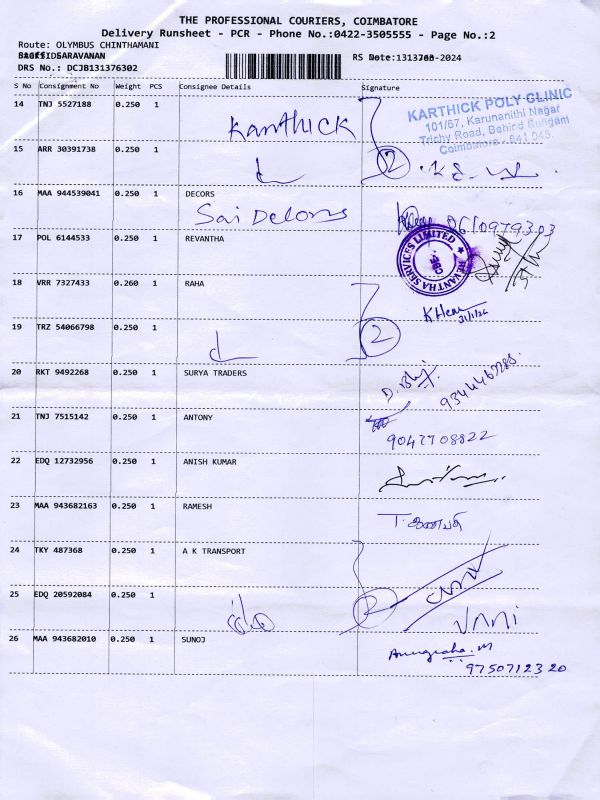 THE PROFESSIONAL COURIERS, COIMBATORE
Delivery Runsheet - PCR - Phone No.:0422-3505555 - Page No.:2
Route: OLYMBUS CHINTHAMANI
SARAVANAN
RS Date: -2024
DRS No.: DCJB131376302
S No Consignment No Weight PCS Consignee Details Signature
14 TNJ 5527188 0.250 1 Kanthick
KARTHICK POLY CLINIC
101/67, Karunanithi Nagar
Trichy Road, Behind Sungam
Coimbatore - 641 045.
15 ARR 30391738 0.250 1 2
16 MAA 944539041 0.250 1 DECORS
Sai Decors
17 POL 6144533 0.250 1 REVANTHA
REVANTHA SERVICES LIMITED
18 VRR 7327433 0.260 1 RAHA
31/1/24
19 TRZ 54066798 0.250 1 2
20 RKT 9492268 0.250 1 SURYA TRADERS
21 TNJ 7515142 0.250 1 ANTONY
9047708822
22 EDQ 12732956 0.250 1 ANISH KUMAR
23 MAA 943682163 0.250 1 RAMESH
T. கணபதி
24 TKY 487368 0.250 1 A K TRANSPORT
25 EDQ 20592084 0.250 1 2
26 MAA 943682010 0.250 1 SUNOJ
Anugraha. M
9750712320